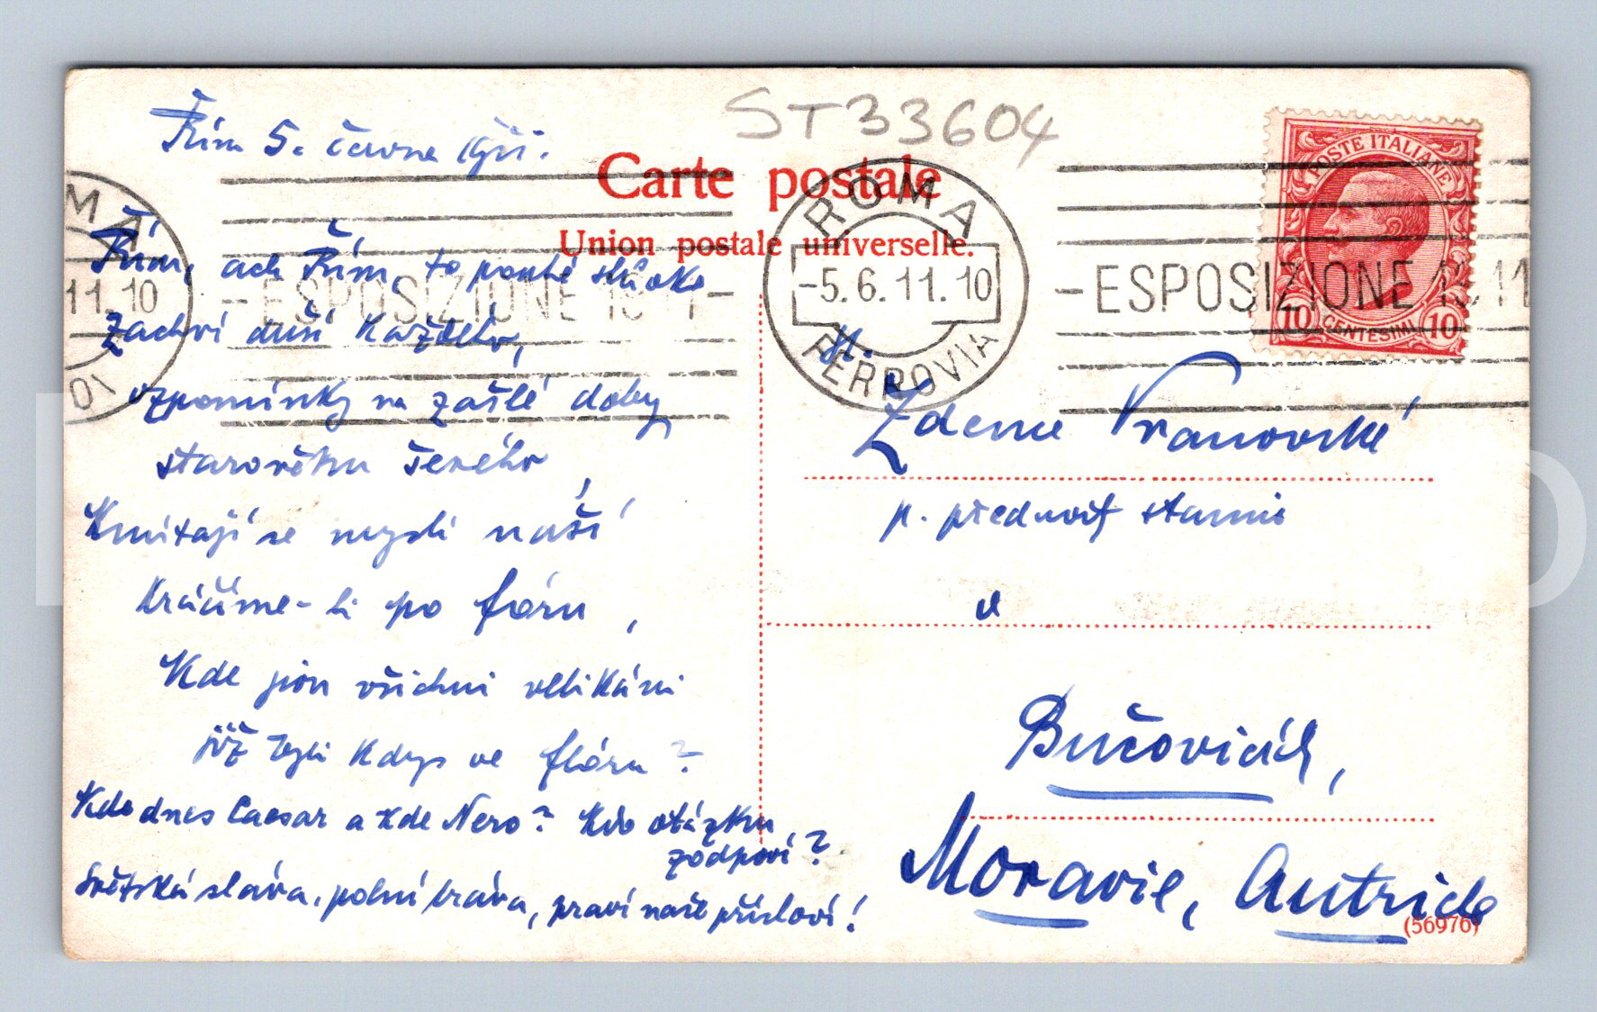 ST33604
Řím 5. června 1911.
Carte postale
Union postale universelle.
ROMA
-5.6.11.10
FERROVIA
-ESPOSIZIONE 1911
POSTE ITALIANE
10 CENTESIMI 10
MA
11.10
-ESPOSIZIONE 1911-
Řím, ach Řím, to pouhé slůvko
zachví duší každého,
vzpomínky na zašlé doby
starověku šerého,
Kmitají se myslí naší
Kráčíme-li po fóru,
Kde jsou všichni velikáni
již byli kdys ve flóru?
Kde dnes Caesar a kde Nero? Kdo otázku
zodpoví?
Světská sláva, polní tráva, praví naše přísloví!
Sl.
Zdence Vranovské
p. přednosty stanice
v
Bučovicích,
Moravie, Autriche
(56976)